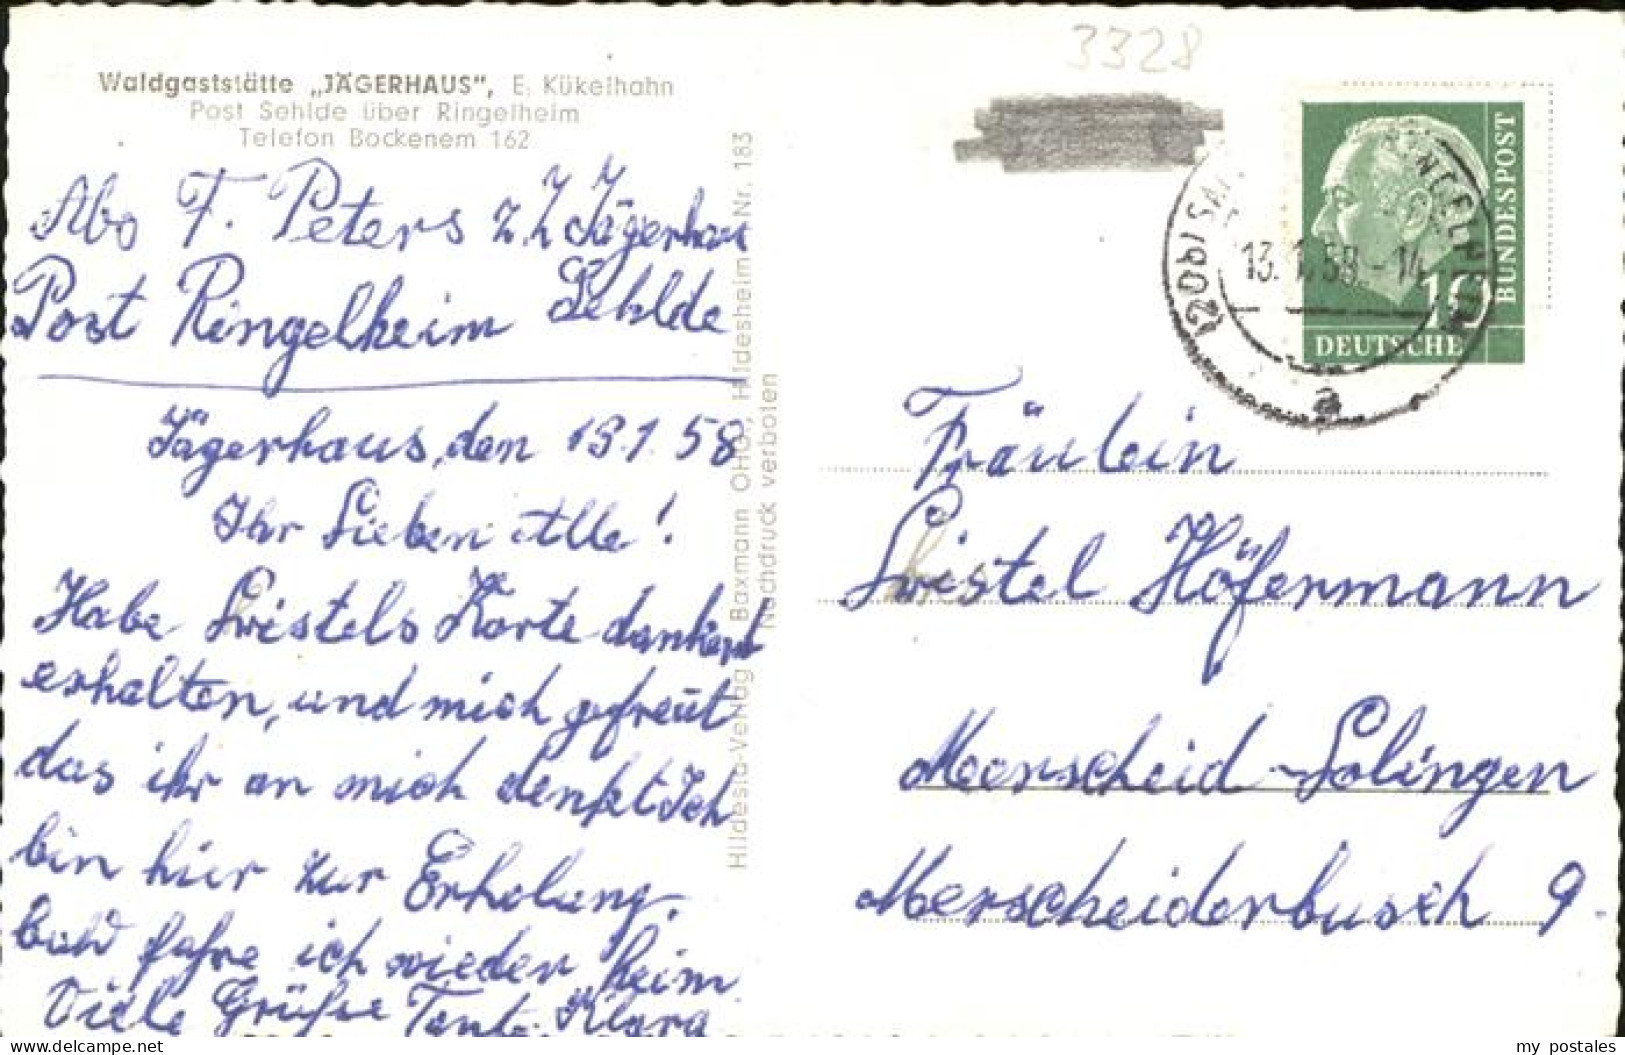 3328
Waldgaststätte „JÄGERHAUS", E. Kükelhahn
Post Sehlde über Ringelheim
Telefon Bockenem 162
Abs F. Peters z. Z Jägerhaus
Post Ringelheim Sehlde
Jägerhaus, den 13.1.58
Ihr Lieben Alle!
Habe Christels Karte dankend
erhalten, und mich gefreut
das ihr an mich denkt Ich
bin hier zur Erholung.
bald fahre ich wieder heim
Viele Grüße Tante Klara
Hildesia-Verlag Baxmann OHG., Hildesheim Nr. 183
Nachdruck verboten
(20a) RINGELHEIM
13.1.58.-14
a
10
DEUTSCHE
BUNDESPOST
Fräulein
Christel Höfermann
Merscheid-Solingen
Merscheiderbusch 9.
my postales